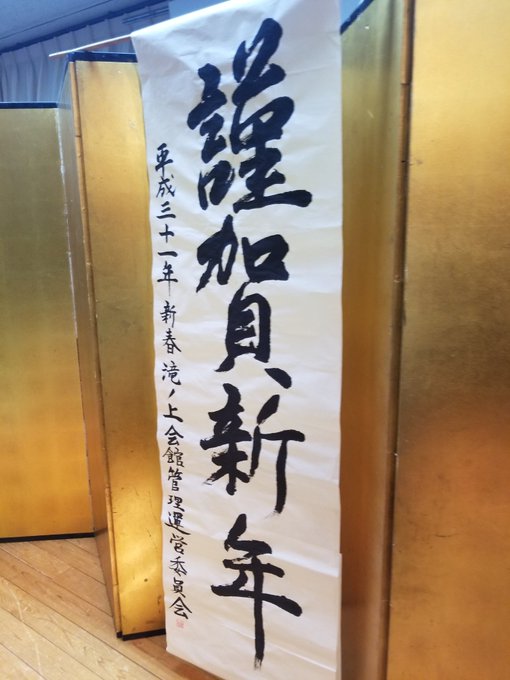 謹賀新年
平成三十一年 新春 滝ノ上会館管理運営委員会